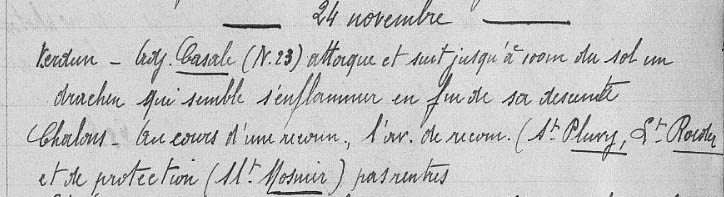 24 novembre
Verdun - Adj. Casale (N.23) attaque et suit jusqu'à 100m du sol un
drachen qui semble s'enflammer en fin de sa descente
Chalons - Au cours d'une reconn., l'av. de reconn. (St. Pluvy, Lt. 
et de protection (Mt. Mosnier) pas rentrés